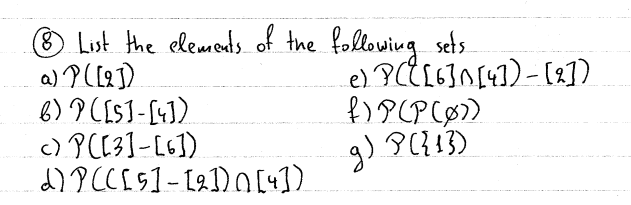 ⑧ List the elements of the following sets
a) P([2])
b) P([5]-[4])
c) P([3]-[6])
d) P(([5]-[2])∩[4])
e) P(([6]∩[4])-[2])
f) P(P(ø))
g) P({1})